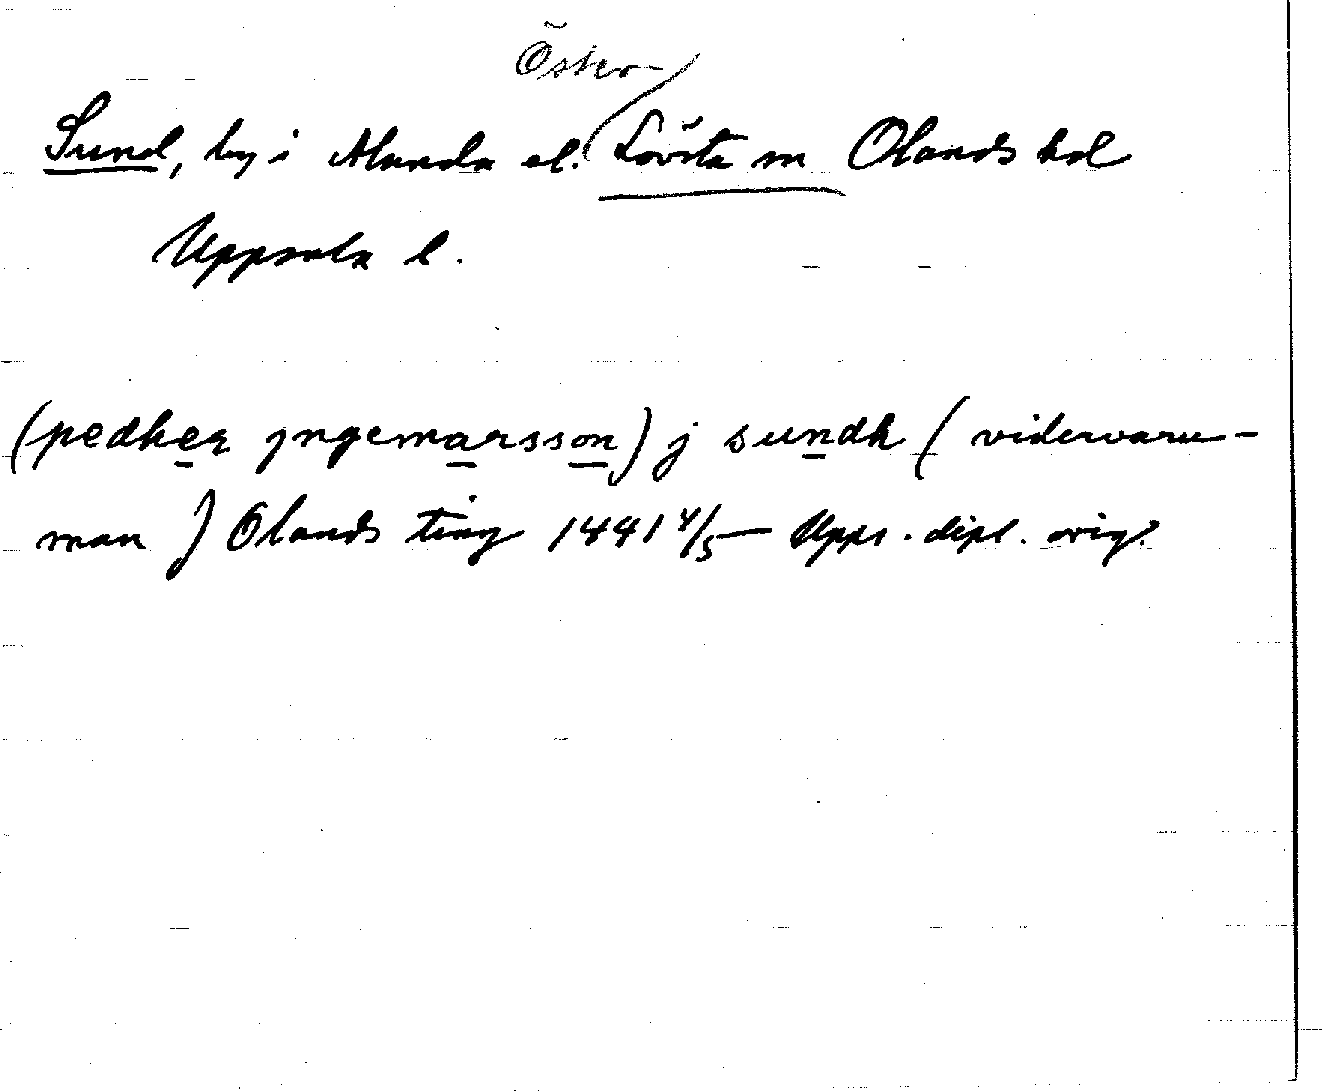 Öster-
Sund, by i Alunda el. Lövsta sn Olands hd
Uppsala l.
(pedher jngemarsson) j sundh (vidervaru-
man) Olands ting 1441 4/5 Upps. dipl. orig.